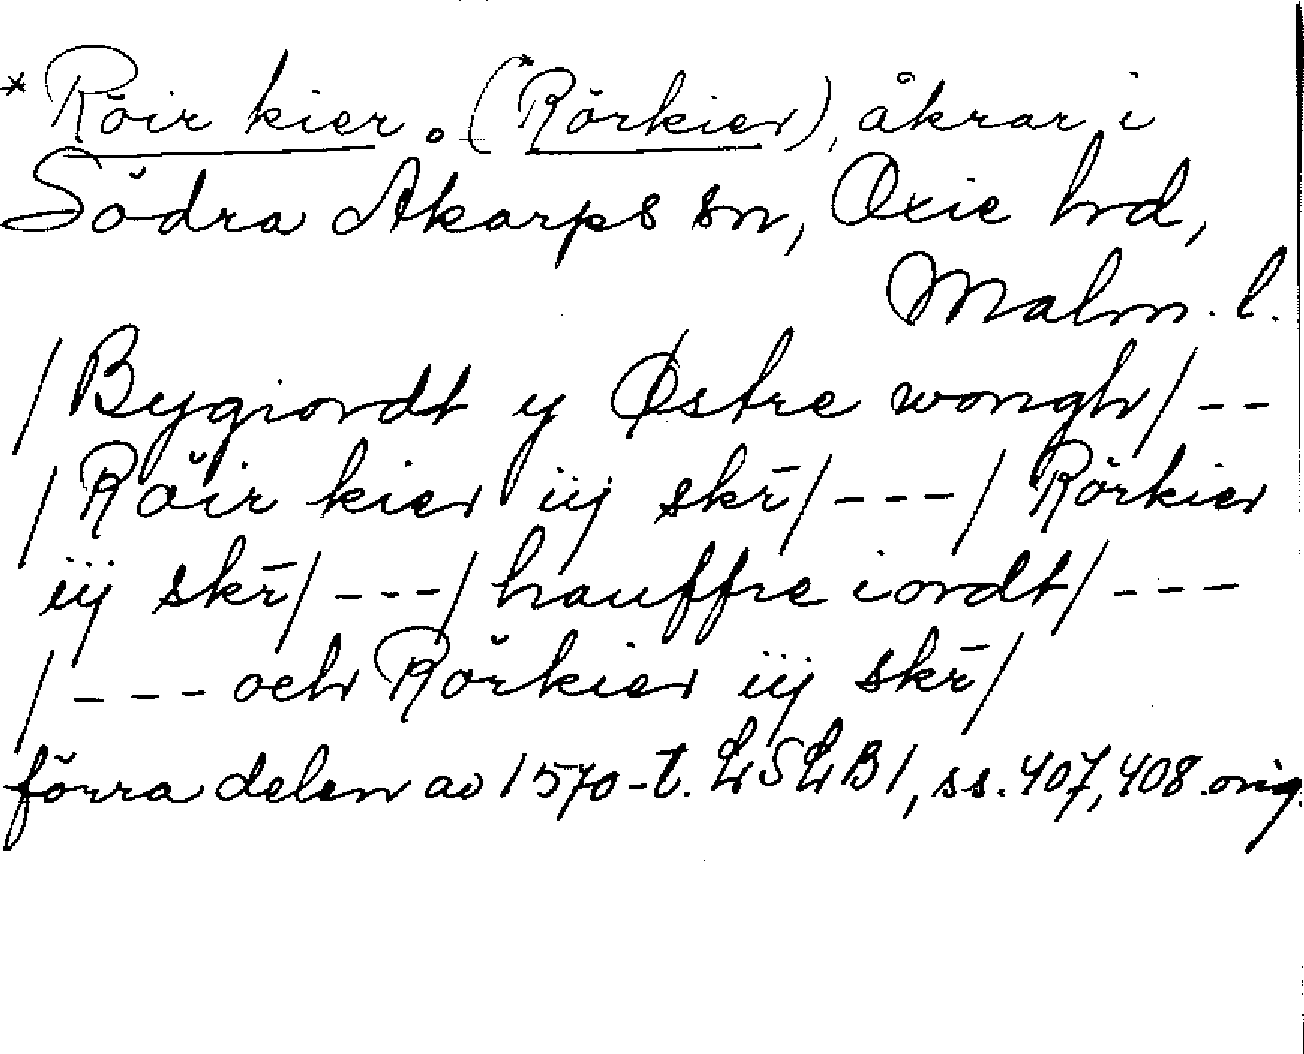 *Röir kier. (*Rörkier), åkrar i
Södra Åkarps sn, Oxie hrd,
Malm. l.
/Bygiordt y Østre wongh/--
/Röir kier iij skr̄/---/Rörkier
iij skr̄/---/hauffre iordt/---
/---och Rörkier iij skr̄/
förra delen av 1570-t. LSLB1, ss. 407, 408. orig.